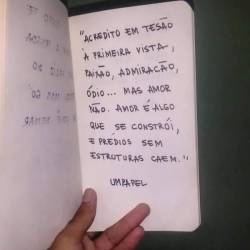 "ACREDITO EM TESÃO
À PRIMEIRA VISTA,
PAIXÃO, ADMIRACÃO,
ÓDIO... MAS AMOR
NÃO. AMOR É ALGO
QUE SE CONSTRÓI,
E PRÉDIOS SEM
ESTRUTURAS CAEM."
UMPAPEL